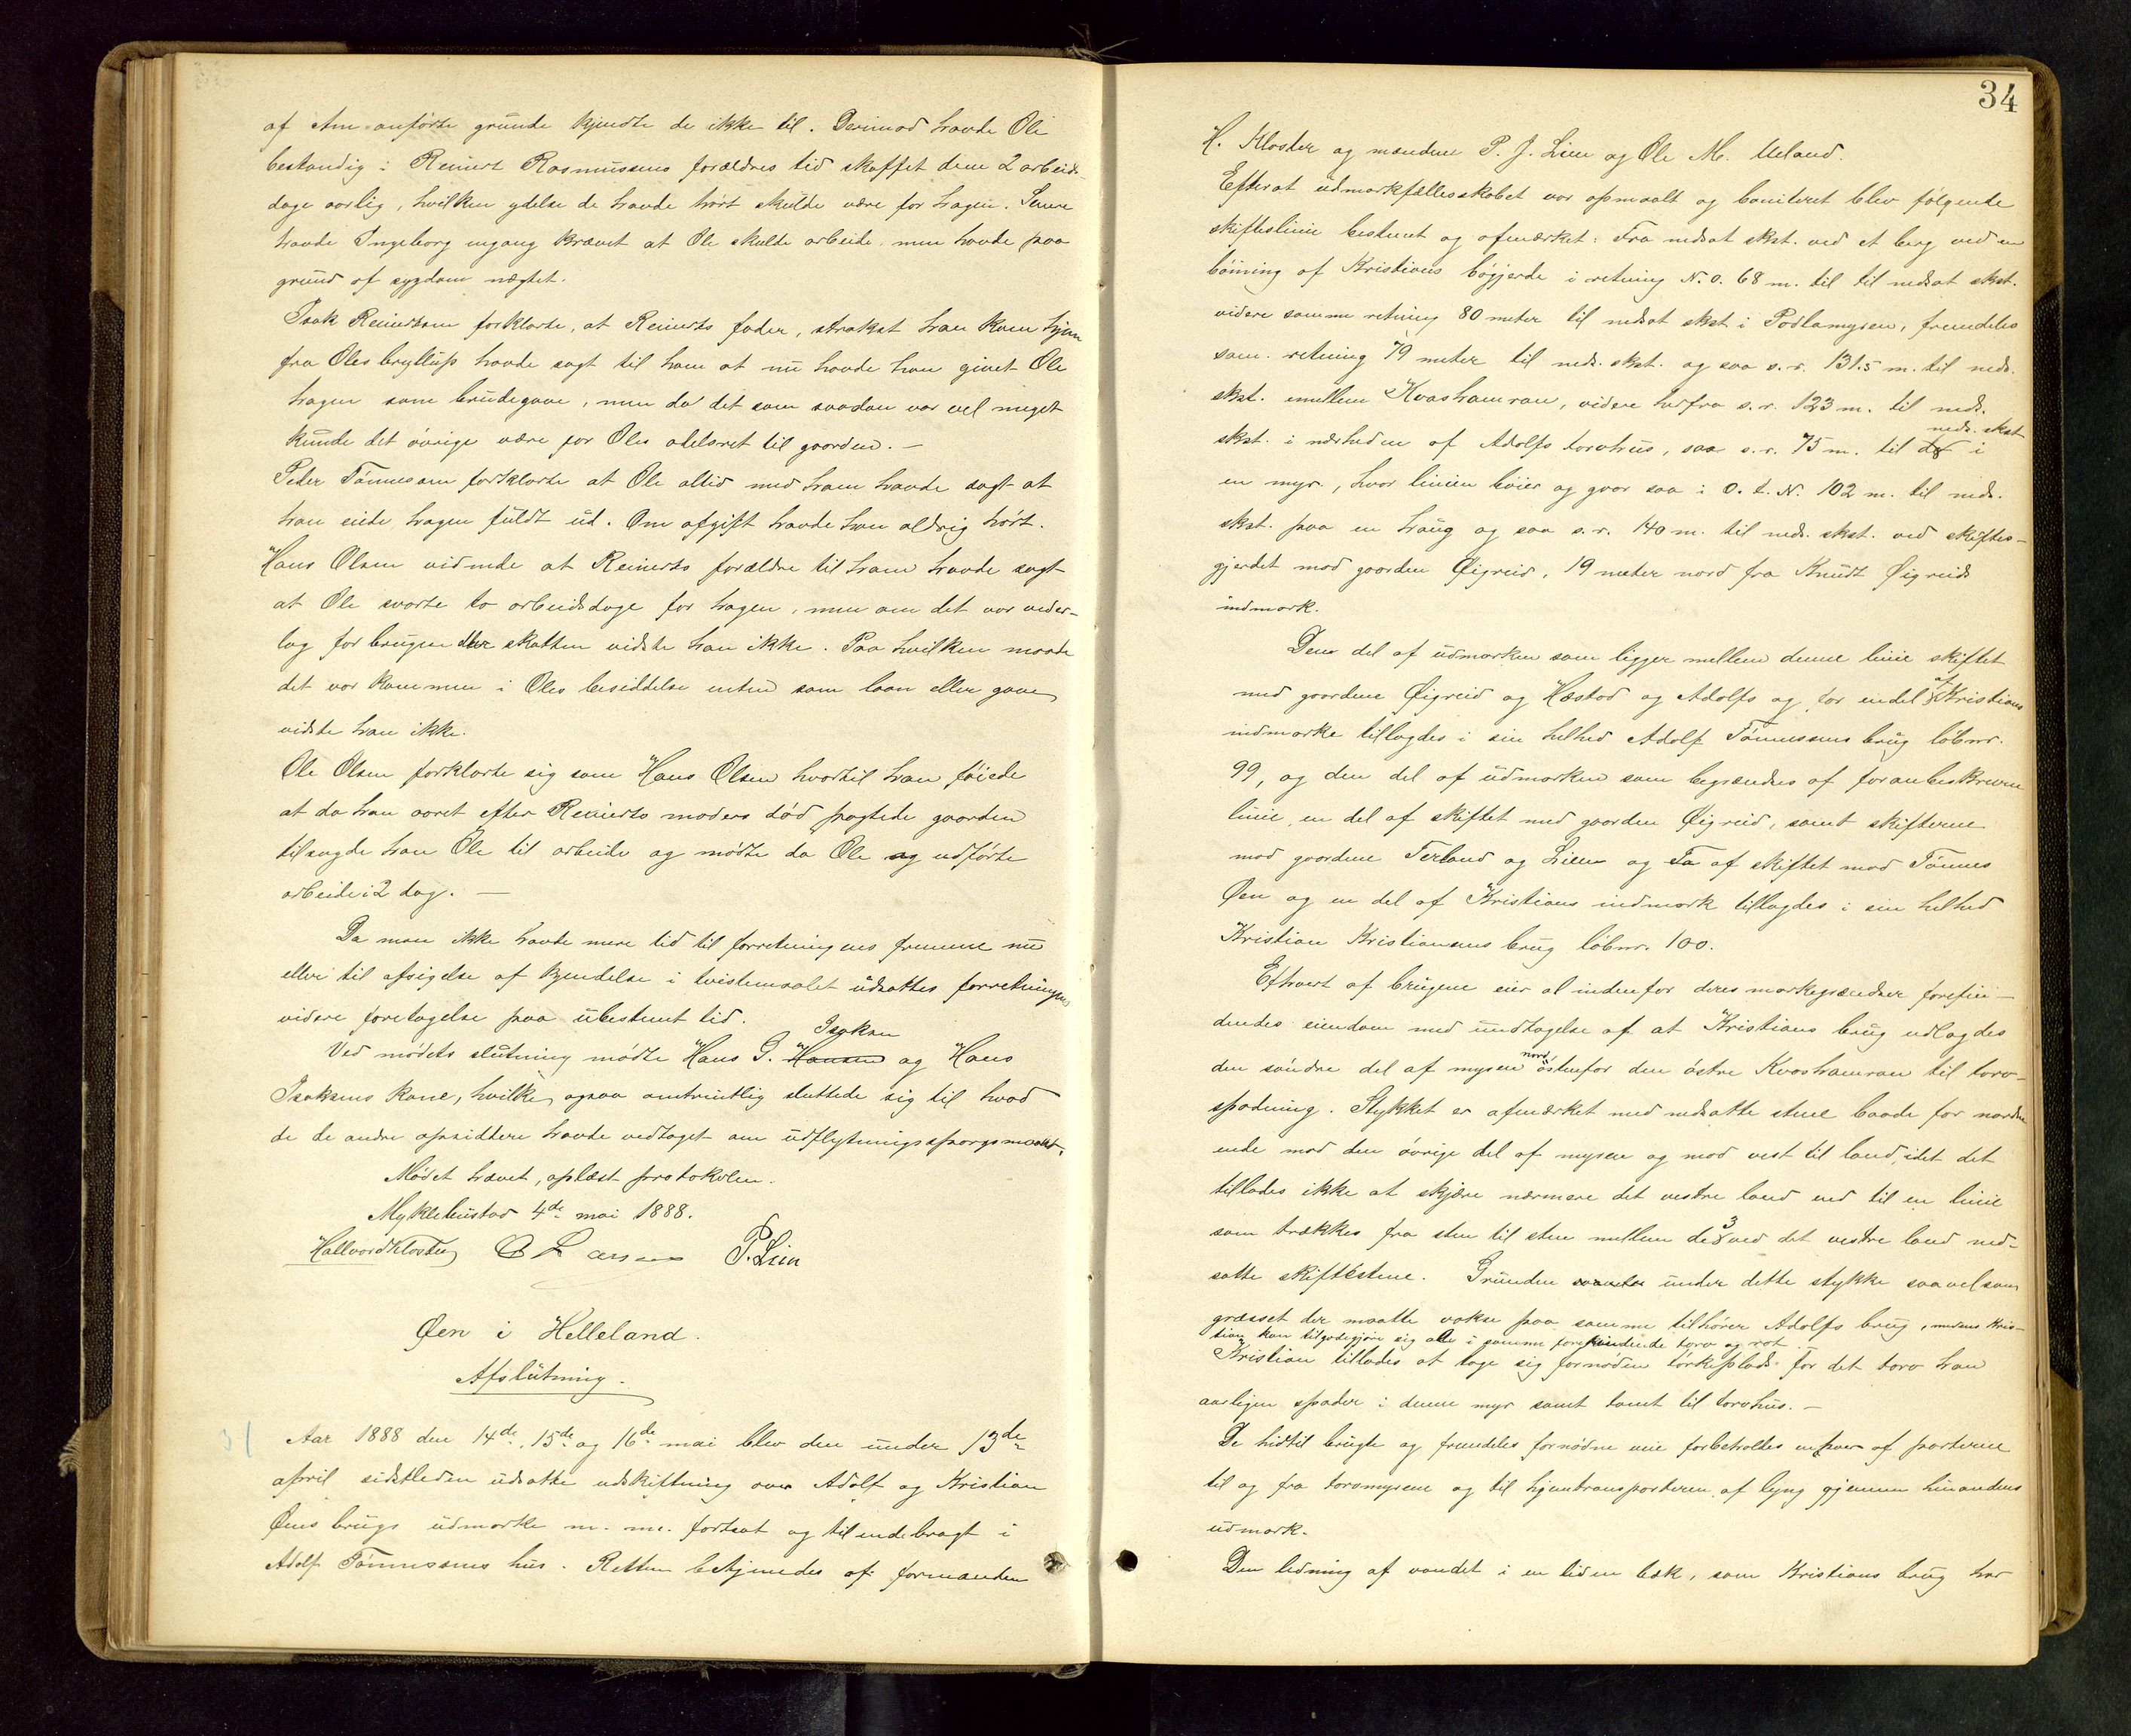 af Am anførte grunde kjendte de ikke til. Derimod havde Ole
bestandig i Reinert Rasmussens forældres tid skaffet dem 2 arbeids-
dage aarlig, hvilken ydelse de havde hørt skulde være for hagen. Senere
havde Ingeborg engang krævet at Ole skulde arbeide, men havde paa
grund af sygdom nægtet.
Isak Reinertsen forklarte, at Reinerts fader, strakst han kom hjem
fra Oles bryllup havde sagt til ham at nu havde han givet Ole
hagen som brudegave, men da det som saadan var vel meget
kunde det øvrige være for Oles odelsret til gaarden. —
Peder Tønnesen forklarte at Ole altid med ham havde sagt at
han eiede hagen fuldt ud. Om afgift havde han aldrig hørt.
Hans Olsen vidnede at Reinerts forældre til ham havde sagt
at Ole svarte to arbeidsdage for hagen, men om det var veder-
lag for brugen eller skatten vidste han ikke. Paa hvilken maade
det var kommen i Oles besiddelse enten som laan eller gave
vidste han ikke.
Ole Olsen forklarte sig som Hans Olsen hvortil han føiede
at da han aaret efter Reinerts moders død pagtede gaarden
tilsagde han Ole til arbeide og mødte da Ole og udførte
arbeide i 2 dag. —
Da man ikke havde mere tid til forretningens fremme nu
eller til afsigelse af kjendelse i tvistemaalet udsattes forretningens
videre foretagelse paa ubestemt tid.
Isaksen
Ved mødets slutning mødte Hans G. Hansen og Hans
Isaksens kone, hvilke ogsaa omtrentlig sluttede sig til hvad
de de andre opsiddere havde vedtaget om udflytningsspørgsmaalet.
Mødet hævet, oplæst protokolen.
Myklebustad 4de mai 1888.
Hallvord Kloster O Larsen P. Lien
Øen i Helleland.
Afslutning.
31 Aar 1888 den 14de, 15de og 16de mai blev den under 13de
april sidstleden udsatte udskiftning over Adolf og Kristian
Øens brugs udmarke m. m. fortsat og tilendebragt i
Adolf Tønnessens hus. Retten betjenedes af formanden
34
H. Kloster og mændene P. J. Lien og Ole M. Ueland.
Efterat udmarkfællesskabet var opmaalt og boniteret blev følgende
skifteslinie bestemt og afmærket: Fra nedsat skst. ved et berg ved en
bøining af Kristians bøgjerde i retning N. o. 68 m. til til nedsat skst.
videre samme retning 80 meter til nedsat skst. i Podlamyren, fremdeles
sam. retning 79 meter til neds. skst. og saa s. r. 131.5 m. til neds.
skst. imellem Kvashamran, videre herfra s. r. 123 m. til neds.
neds. skst
skst. i nærheden af Adolfs torvhus, saa s. r. 75 m. til i
en myr., hvor linien bøier og gaar saa i O. t. N. 102 m. til neds.
skst. paa en haug og saa s. r. 140 m. til neds. skst. ved skiftes-
gjerdet mod gaarden Øigreid, 19 meter nord fra Knudt Øigreids
indmark.
Den del af udmarken som ligger mellem denne linie skiftet
med gaardene Øigreid og Hæstad og Adolfs og for endel af Kristians
indmarke tillagdes i sin helhed Adolf Tønnessens brug løbnr.
99, og den del af udmarken som begrændses af foranbeskrevne
linie, en del af skiftet med gaarden Øigreid, samt skifterne
mod gaardene Terland og Lien og af skiftet mod Tønnes
Øen og en del af Kristians indmark tillagdes i sin helhed
Kristian Kristiansens brug løbnr. 100.
Ethvert af brugene eier al indenfor deres markegrændser forefin-
dendes eiendom med undtagelse af at Kristians brug udlagdes
den søndre del af myren nordøstenfor den østre Kvoshamran til torv-
spadning. Stykket er afmærket med nedsatte stene baade for nordre
ende mod den øvrige del af myren og mod vest til land, idet det
tillades ikke at skjære nærmere det vestre land end til en linie
som trækkes fra sten til sten mellem de 3 ved det vestre land ned-
satte skiftestene. Grunden under dette stykke saavelsom
græsset der maatte vokse paa samme tilhører Adolfs brug, medens Kris-
tian kan tilgodegjøre sig alle i samme forefindende torv og rot.
Kristian tillades at tage sig fornøden tørkeplads for det torv han
aarligen spader i denne myr samt tomt til torvhus. —
De hidtil brugte og fremdeles fornødne veie forbeholdes enhver af parterne
til og fra torvmyrene og til hjemtransporteren af lyng gjennem hinandens
udmark.
Den ledning af vandet i en liden bæk, som Kristians brug har